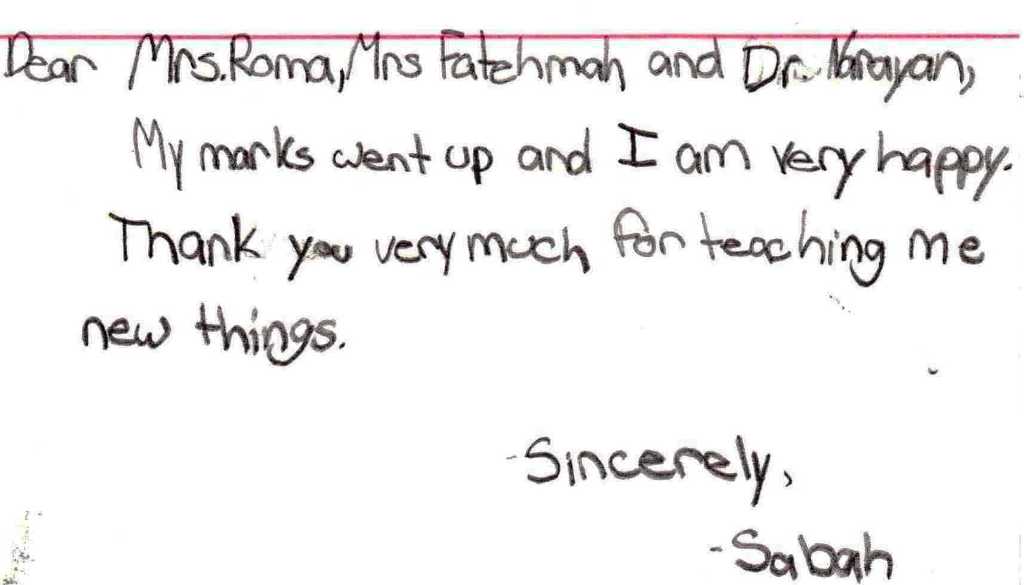 Dear Mrs. Roma, Mrs Fatehmah and Dr. Narayan,
My marks went up and I am very happy.
Thank you very much for teaching me
new things.
-Sincerely,
-Sabah